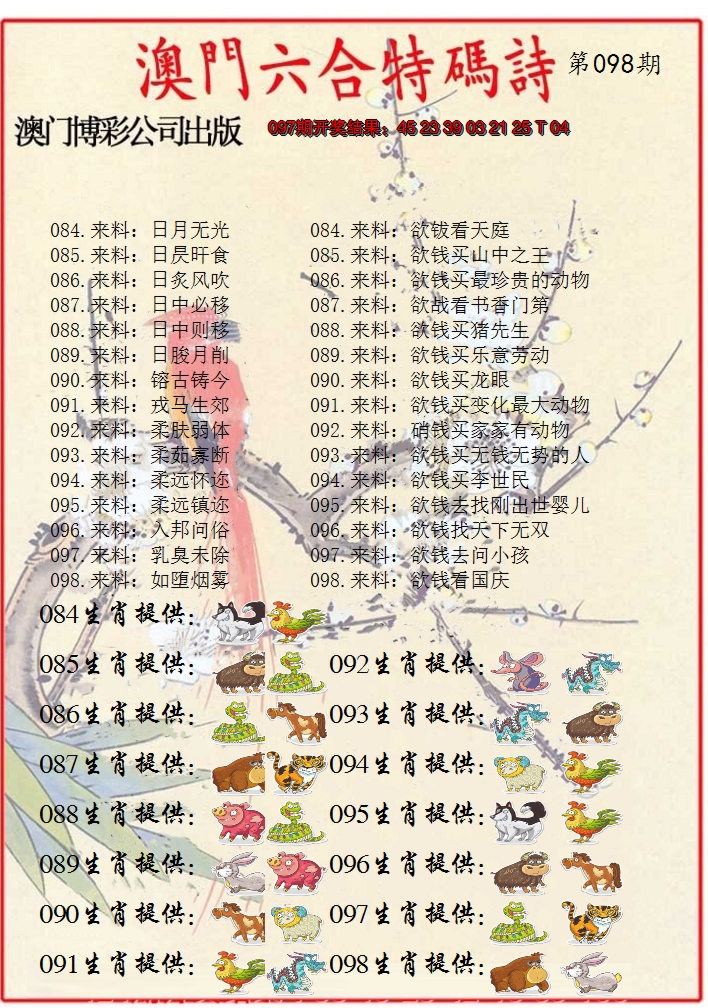 澳門六合特碼詩 第098期
澳门博彩公司出版 097期开奖结果：45 23 39 03 21 25 T 04
084.来料：日月无光 084.来料：欲钹看天庭
085.来料：日昃旰食 085.来料：欲钱买山中之王
086.来料：日炙风吹 086.来料：欲钱买最珍贵的动物
087.来料：日中必移 087.来料：欲战看书香门第
088.来料：日中则移 088.来料：欲钱买猪先生
089.来料：日朘月削 089.来料：欲钱买乐意劳动
090.来料：镕古铸今 090.来料：欲钱买龙眼
091.来料：戎马生郊 091.来料：欲钱买变化最大动物
092.来料：柔肤弱体 092.来料：硝钱买家家有动物
093.来料：柔茹寡断 093.来料：欲钱买无钱无势的人
094.来料：柔远怀迩 094.来料：欲钱买李世民
095.来料：柔远镇迩 095.来料：欲钱去找刚出世婴儿
096.来料：入邦问俗 096.来料：欲钱找天下无双
097.来料：乳臭未除 097.来料：欲钱去问小孩
098.来料：如堕烟雾 098.来料：欲钱看国庆
084生肖提供：
085生肖提供： 092生肖提供：
086生肖提供： 093生肖提供：
087生肖提供： 094生肖提供：
088生肖提供： 095生肖提供：
089生肖提供： 096生肖提供：
090生肖提供： 097生肖提供：
091生肖提供： 098生肖提供：